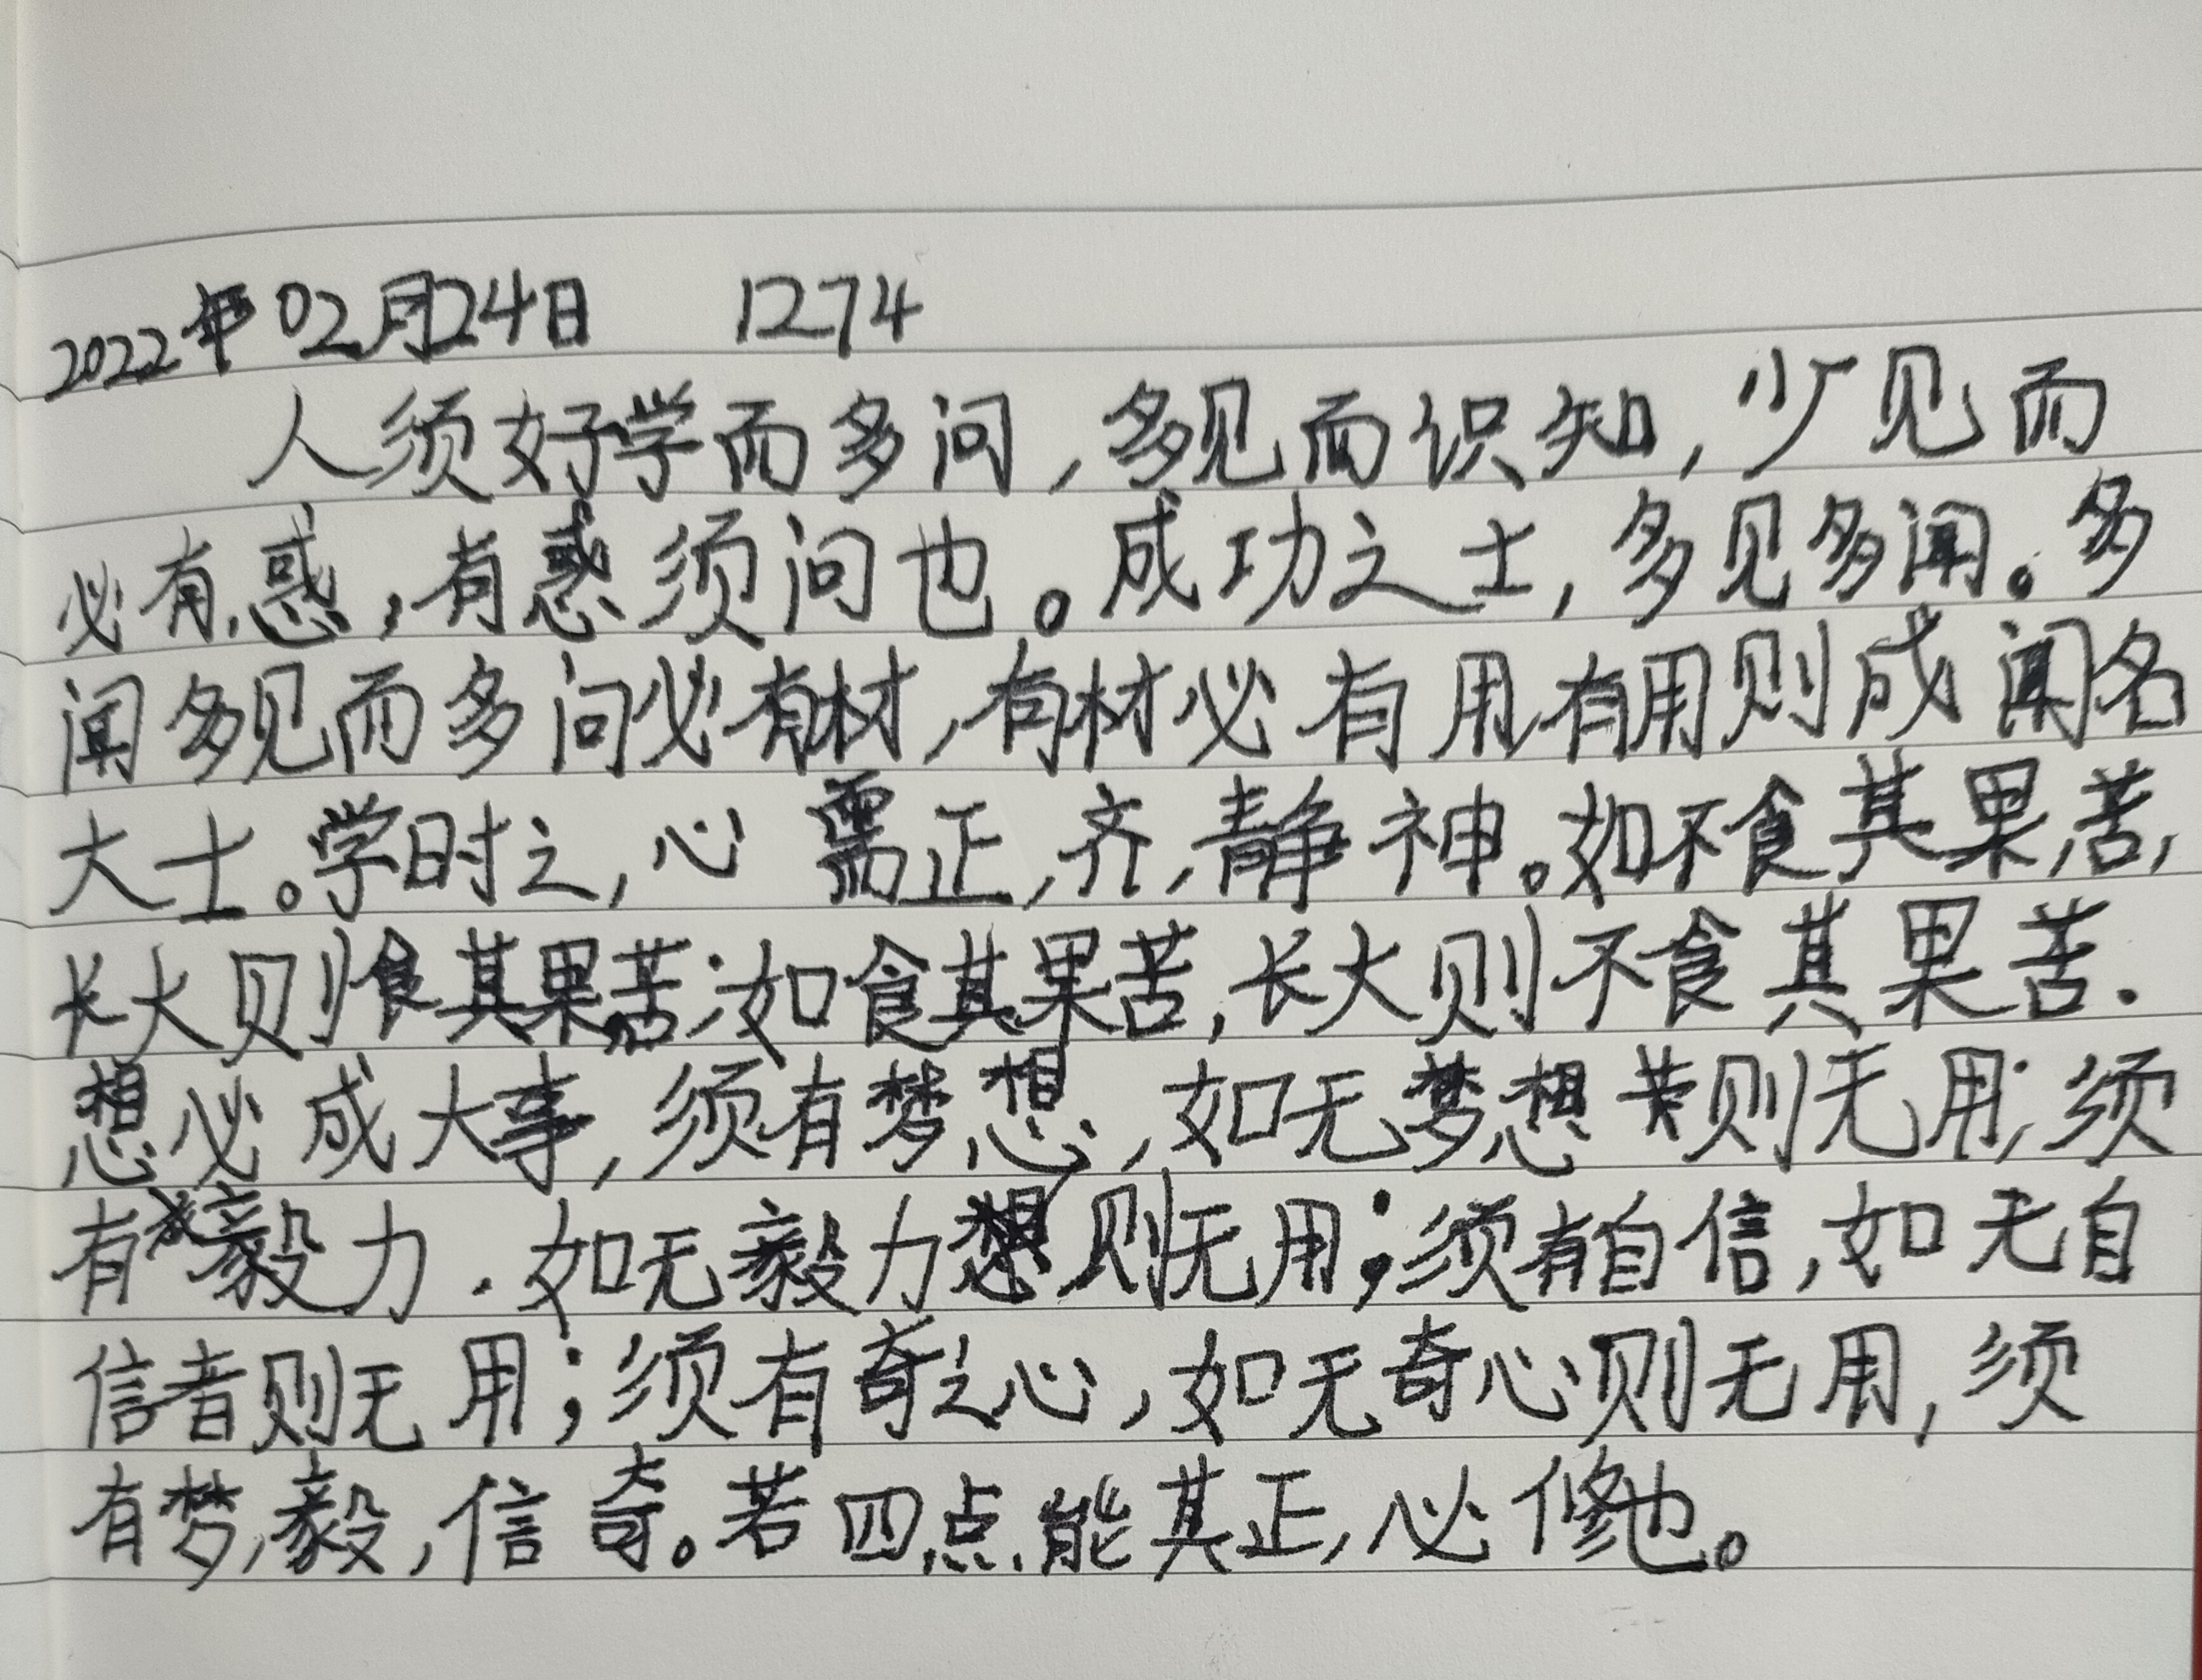 2022年02月24日 1274
人须好学而多问，多见而识知，少见而
必有惑，有惑须问也。成功之士，多见多闻。多
闻多见而多问必有材，有材必有用，有用则成闻名
大士。学时之，心需正，齐，静神。如不食其果苦，
长大则食其果苦；如食其果苦，长大则不食其果苦.
想必成大事，须有梦想，如无梦想则无用；须
有毅力.如无毅力则无用；须有自信，如无自
信者则无用；须有奇之心，如无奇心则无用，须
有梦，毅，信奇。若四点能其正，必修也。